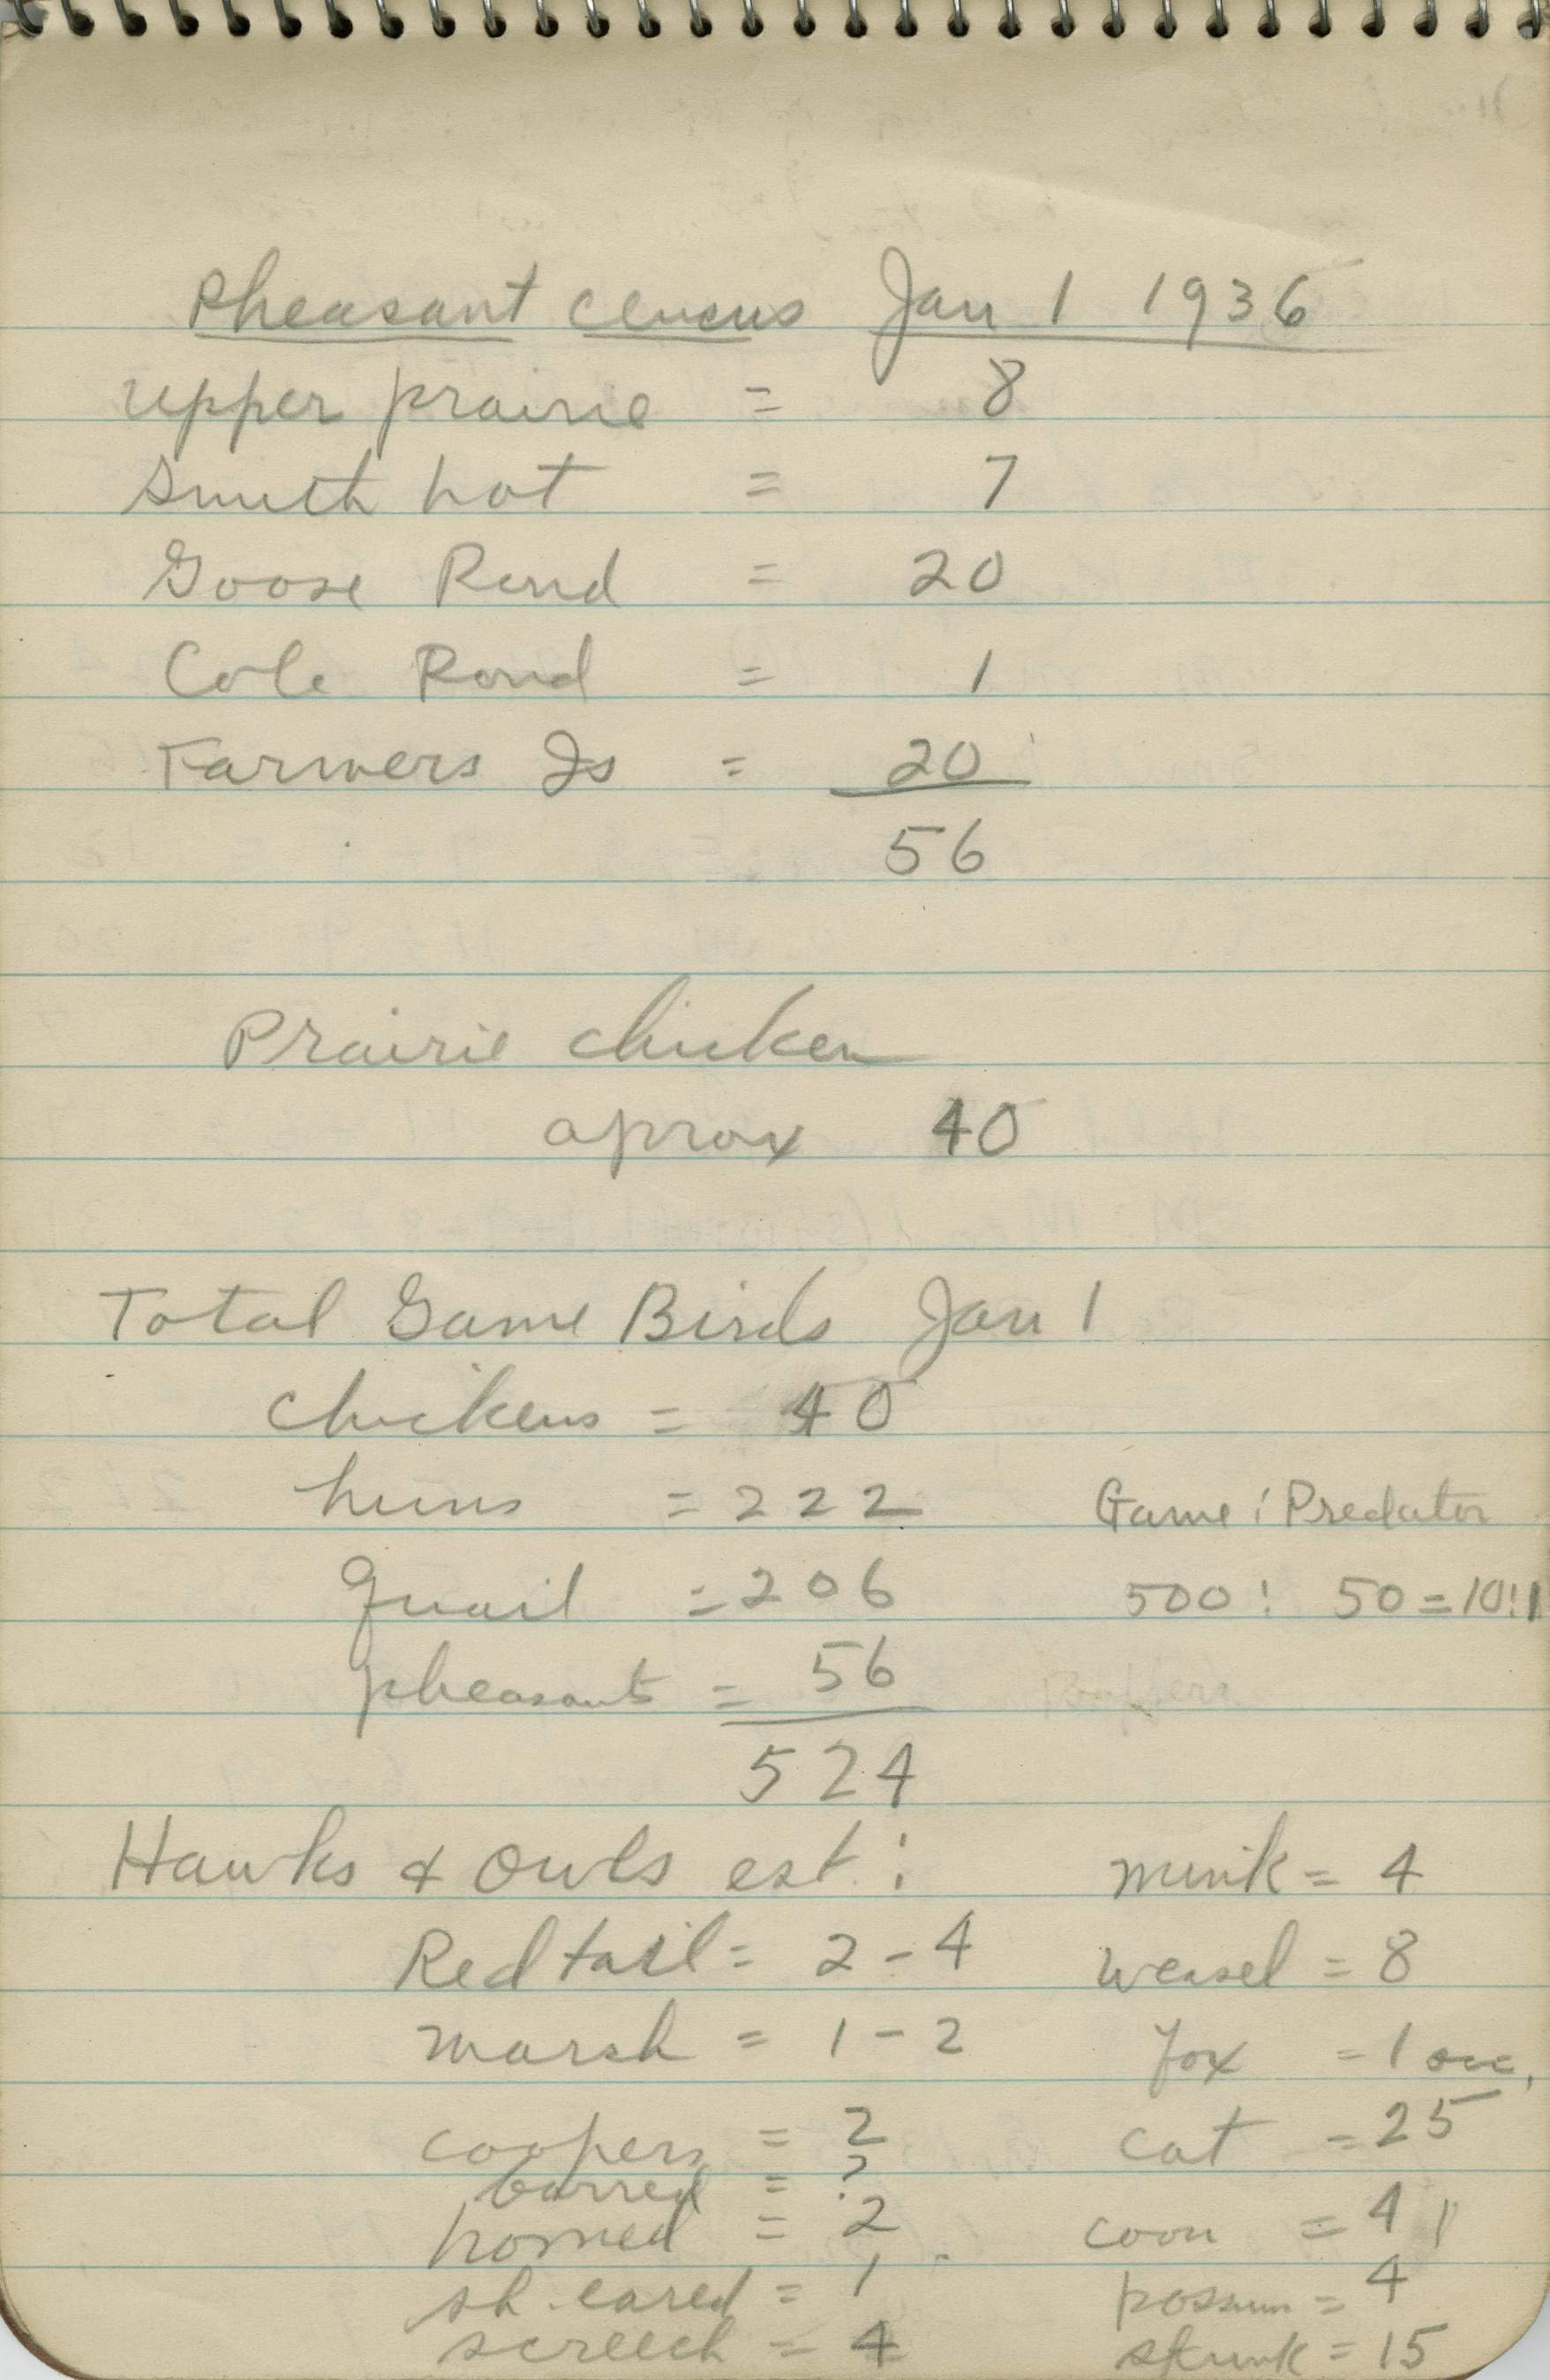 Pheasant census Jan 1 1936
upper prairie = 8
Smith hot = 7
Goose Pond = 20
Cole Pond = 1
Farmers Is = 20
56
Prairie chicken
aprox 40
Total Game Birds Jan 1
chickens = 40
huns = 222
Quail = 206
pheasants = 56
524
Game : Predator
500 : 50 = 10:1
Buffers
Hawks & Owls est :
Redtail = 2 - 4
marsh = 1 - 2
coopers = 2
barred = ?
horned = 2
sh. eared = 1
screech = 4
mink = 4
weasel = 8
fox = 1 occ.
cat = 25
coon = 4
possum = 4
skunk = 15